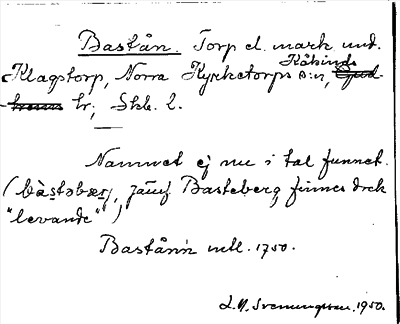 Bastån. Torp el. mark und.
Klagstorp, Norra Kyrketorps s:n, Kåkinds
hr; Skb. l.
Namnet ej nu i tal funnet.
(bàstəbærj, jämf Basteberg, finnes dock
"levande")
Bastånn nell. 1750.
L.M. Svenungsson. 1950.